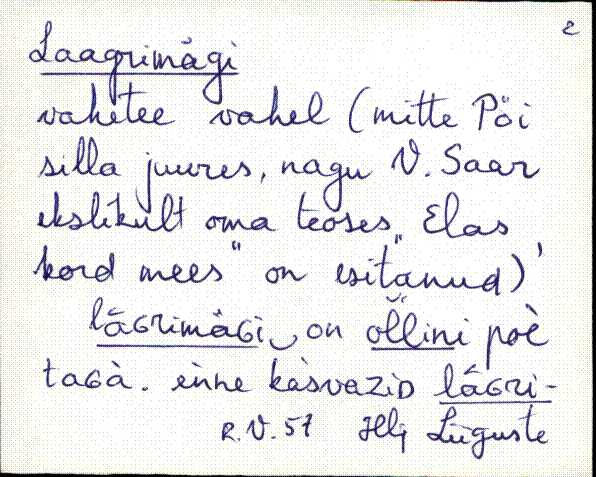 2
Laagrimägi
vahetee vahel (mitte Pöi
silla juures, nagu V. Saar
ekslikult oma teoses „Elas
kord mees" on esitanud)
lāɢrimäɢi on ol̆l̆ini poè
taɢà. ènne kàsvaziᴅ lāɢri-
R.V. 57 Hlj Lüguste